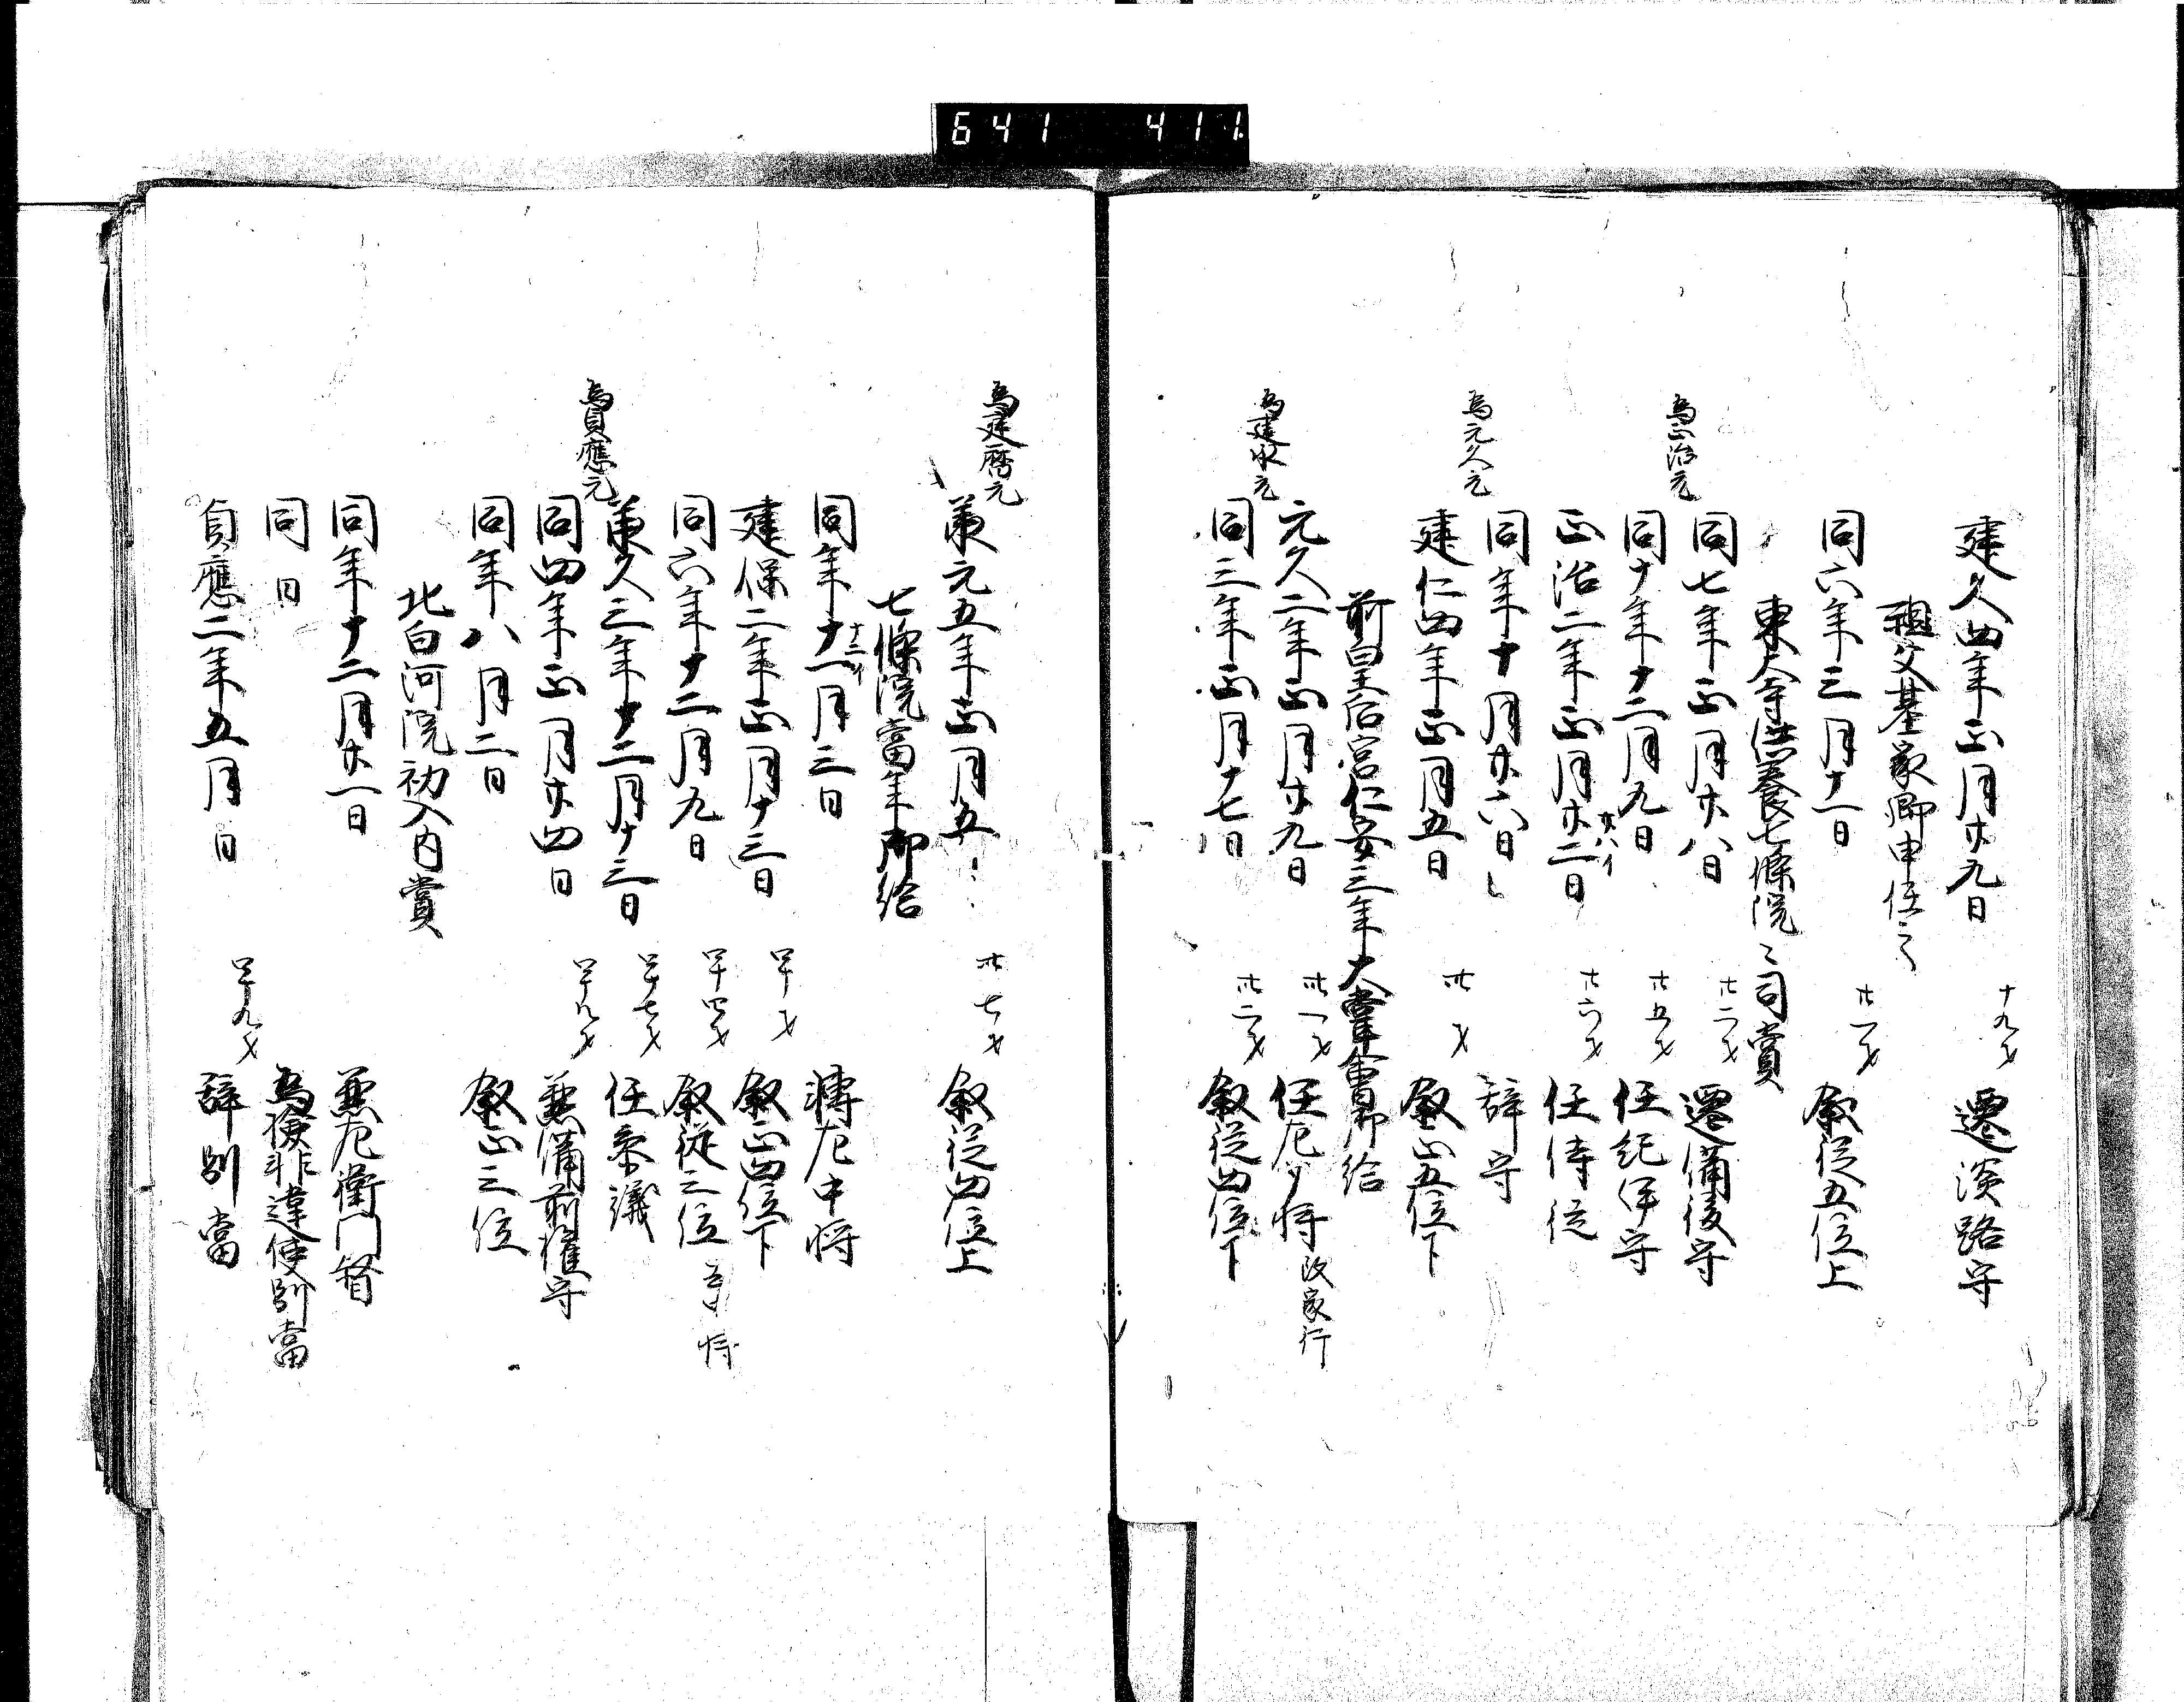 641 411
建久四年正月廿九日 十九才 遷淡路守
祖父基家卿申任之
同六年三月十二日 廿一才 叙従五位上
東大寺供養七條院々司賞
同七年正月廿八日 廿二才 遷備後守
為正治元
同十年十二月九日 廿五才 任紀伊守
正治二年正月廿二日 廿八イ 廿六才 任侍従
同年十月廿六日 辞守
為元久元
建仁四年正月五日 卅才 叙正五位下
前皇后宮仁安三年大嘗會御給
元久二年正月廿九日 卅一才 任左少将 改家行
為建永元
同三年正月十七日 卅二才 叙従四位下
為建暦元
承元五年正月五日 卅七才 叙従四位上
七條院當年御給
同年十一月三日 十二イ 轉左中将
建保二年正月十三日 四十才 叙正四位下
同六年十二月九日 四十四才 叙従三位
為貞應元
承久三年十二月十三日 四十七才 任参議
同四年正月廿四日 四十八才 兼備前権守
同年八月二日 叙正三位
北白河院初入内賞
同年十二月廿一日 兼左衛門督
同日 為検非違使別當
貞應二年五月日 四十九才 辞別當